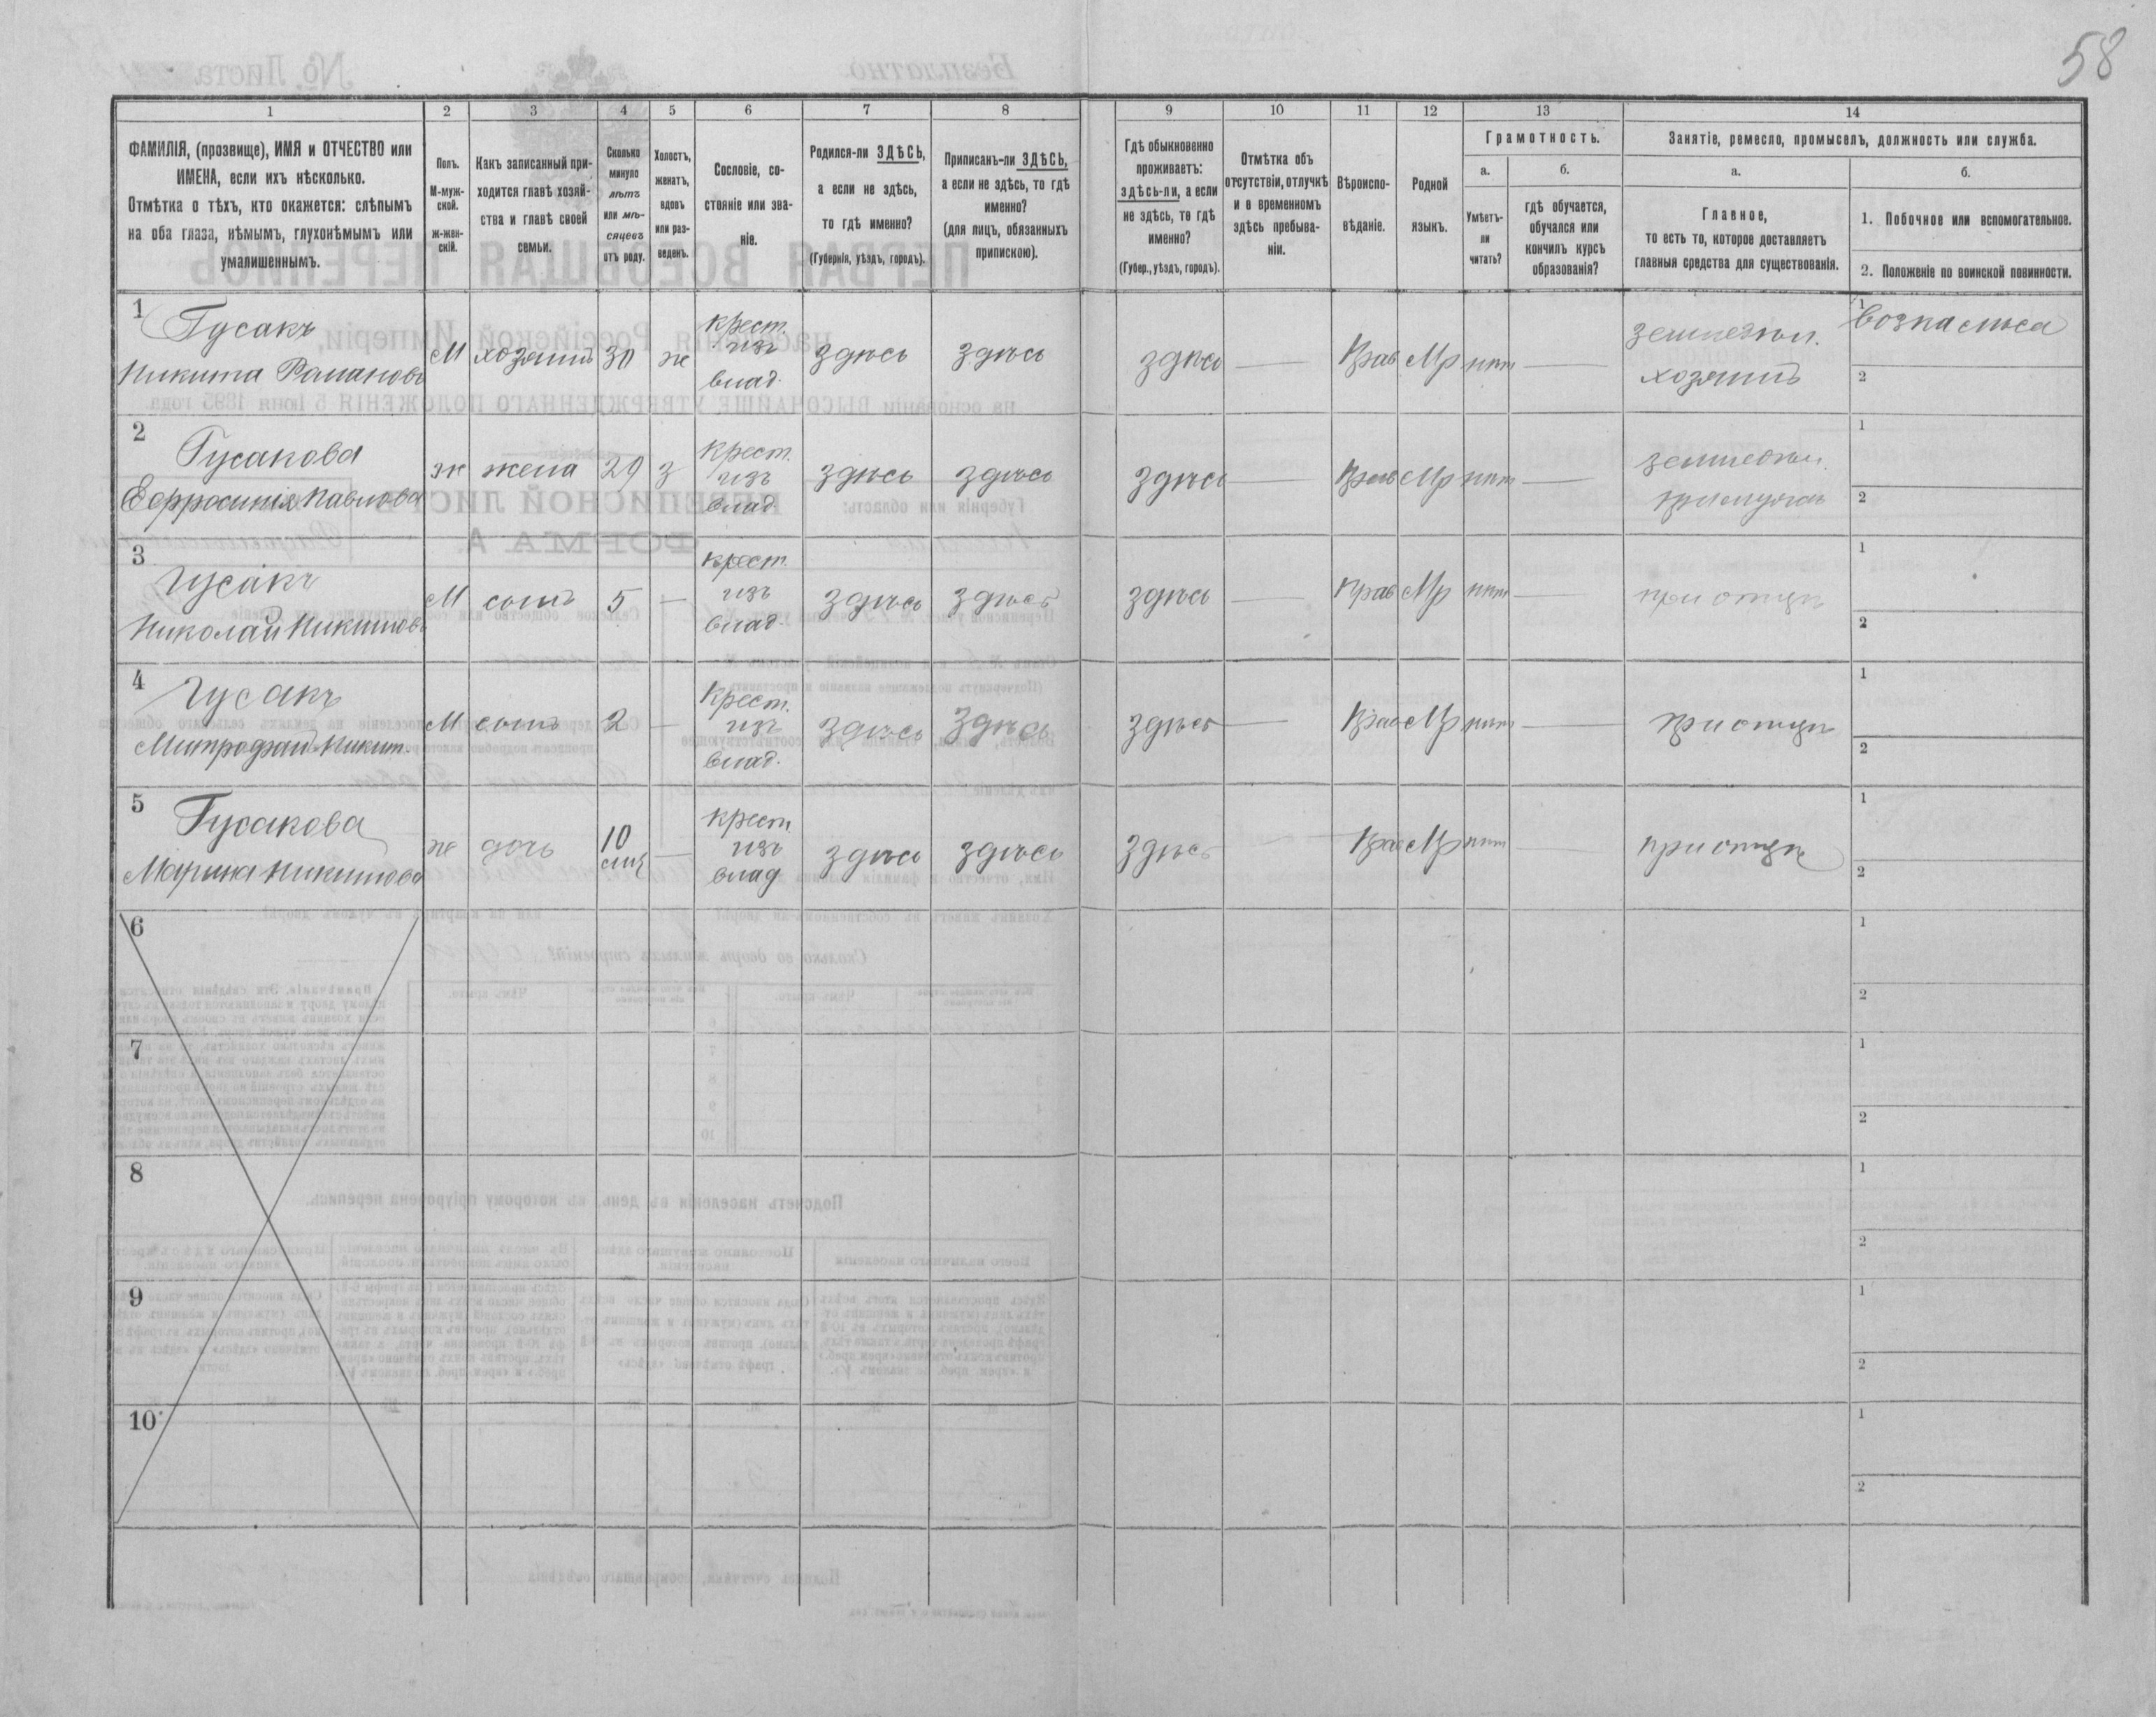 58
1 2 3 4 5 6 7 8 9 10 11 12 13 14
ФАМИЛІЯ, (прозвище), ИМЯ и ОТЧЕСТВО или
ИМЕНА, если ихъ нѣсколько.
Отмѣтка о тѣхъ, кто окажется: слѣпымъ
на оба глаза, нѣмымъ, глухонѣмымъ или
умалишеннымъ.
Полъ.
М-муж-
ской.
ж-жен-
скій.
Какъ записанный при-
ходится главѣ хозяй-
ства и главѣ своей
семьи.
Сколько
минуло
лѣтъ
или мѣ-
сяцевъ
отъ роду.
Холостъ,
женатъ,
вдовъ
или раз-
веденъ.
Сословіе, со-
стояніе или зва-
ніе.
Родился-ли ЗДѢСЬ,
а если не здѣсь,
то гдѣ именно?
(Губернія, уѣздъ, городъ).
Приписанъ-ли ЗДѢСЬ,
а если не здѣсь, то гдѣ
именно?
(для лицъ, обязанныхъ
припискою).
Гдѣ обыкновенно
проживаетъ:
здѣсь-ли, а если
не здѣсь, то гдѣ
именно?
(Губер., уѣздъ, городъ).
Отмѣтка объ
отсутствіи, отлучкѣ
и о временномъ
здѣсь пребыва-
ніи.
Вѣроиспо-
вѣданіе.
Родной
языкъ.
Грамотность.
а.
Умѣетъ-
ли
читать?
б.
гдѣ обучается,
обучался или
кончилъ курсъ
образованія?
Занятіе, ремесло, промыселъ, должность или служба.
а.
Главное,
то есть то, которое доставляетъ
главныя средства для существованія.
б.
1. Побочное или вспомогательное.
2. Положеніе по воинской повинности.
1
Гусакъ
Никита Романовъ
М хозяинъ 30 ж
крест.
изъ
влад.
здѣсь здѣсь здѣсь — Прав Мр нѣт —
земледѣл.
хозяинъ
1
возка лѣса
2
2
Гусакова
Ефросинія Павлова
ж жена 29 з
крест.
изъ
влад.
здѣсь здѣсь здѣсь — Прав Мр нѣт —
земледѣл.
при мужѣ
1
2
3
Гусакъ
Николай Никитовъ
М сынъ 5 —
крест.
изъ
влад.
здѣсь здѣсь здѣсь — Прав Мр нѣт —
при отцѣ
1
2
4
Гусакъ
Митрофанъ Никит.
М сынъ 2 —
крест.
изъ
влад.
здѣсь здѣсь здѣсь — Прав Мр нѣт —
при отцѣ
1
2
5
Гусакова
Марина Никитова
ж дочь
10
мѣс
—
крест.
изъ
влад
здѣсь здѣсь здѣсь — Прав Мр нѣт —
при отцѣ
1
2
6
1
2
7
1
2
8
1
2
9
1
2
10
1
2